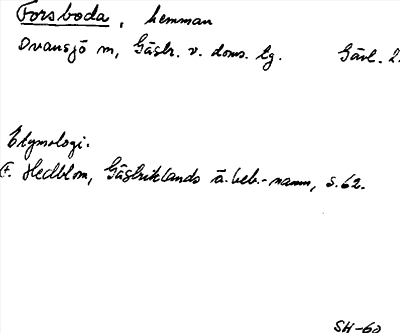 Forsboda, hemman
Ovansjö m, Gästr. v. doms. lg. Gävl. 2.
Etymologi.
F. Hedblom, Gästriklands ä. beb.-namn, s. 62.
SH-60